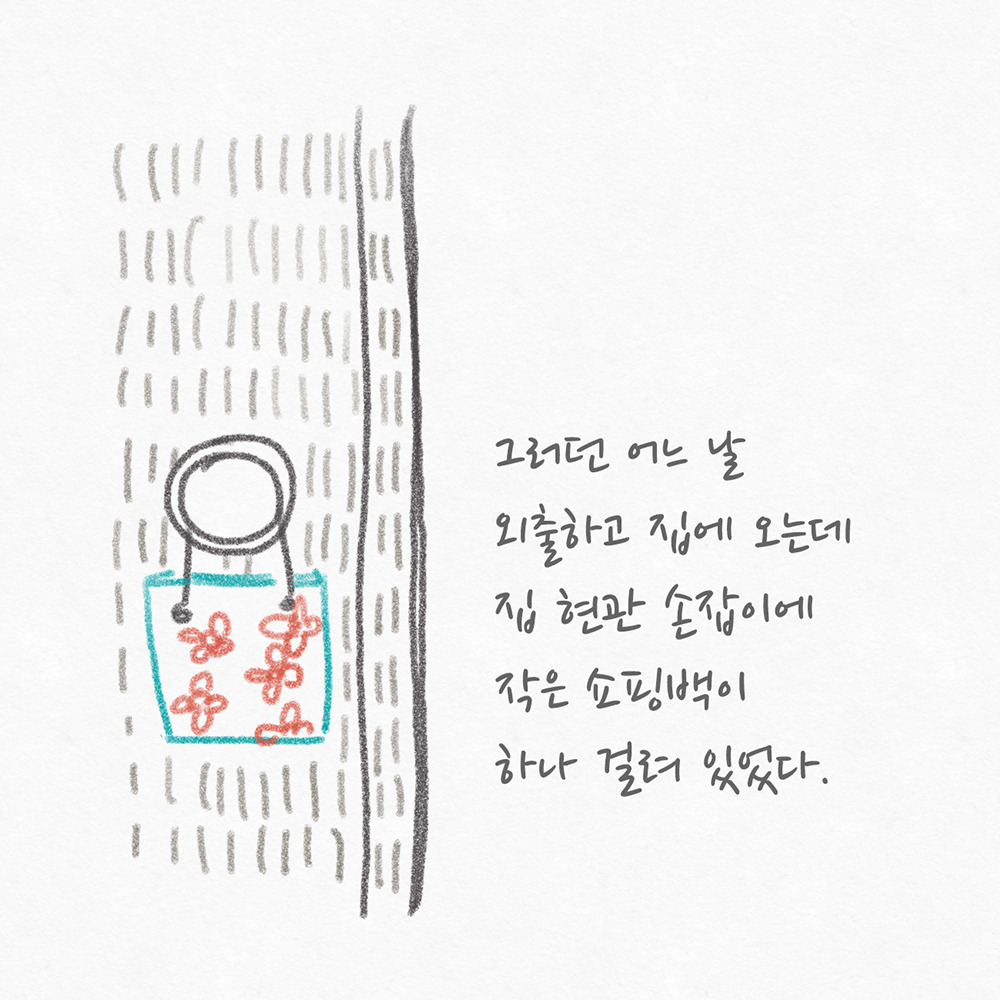 그러던 어느 날
외출하고 집에 오는데
집 현관 손잡이에
작은 쇼핑백이
하나 걸려 있었다.